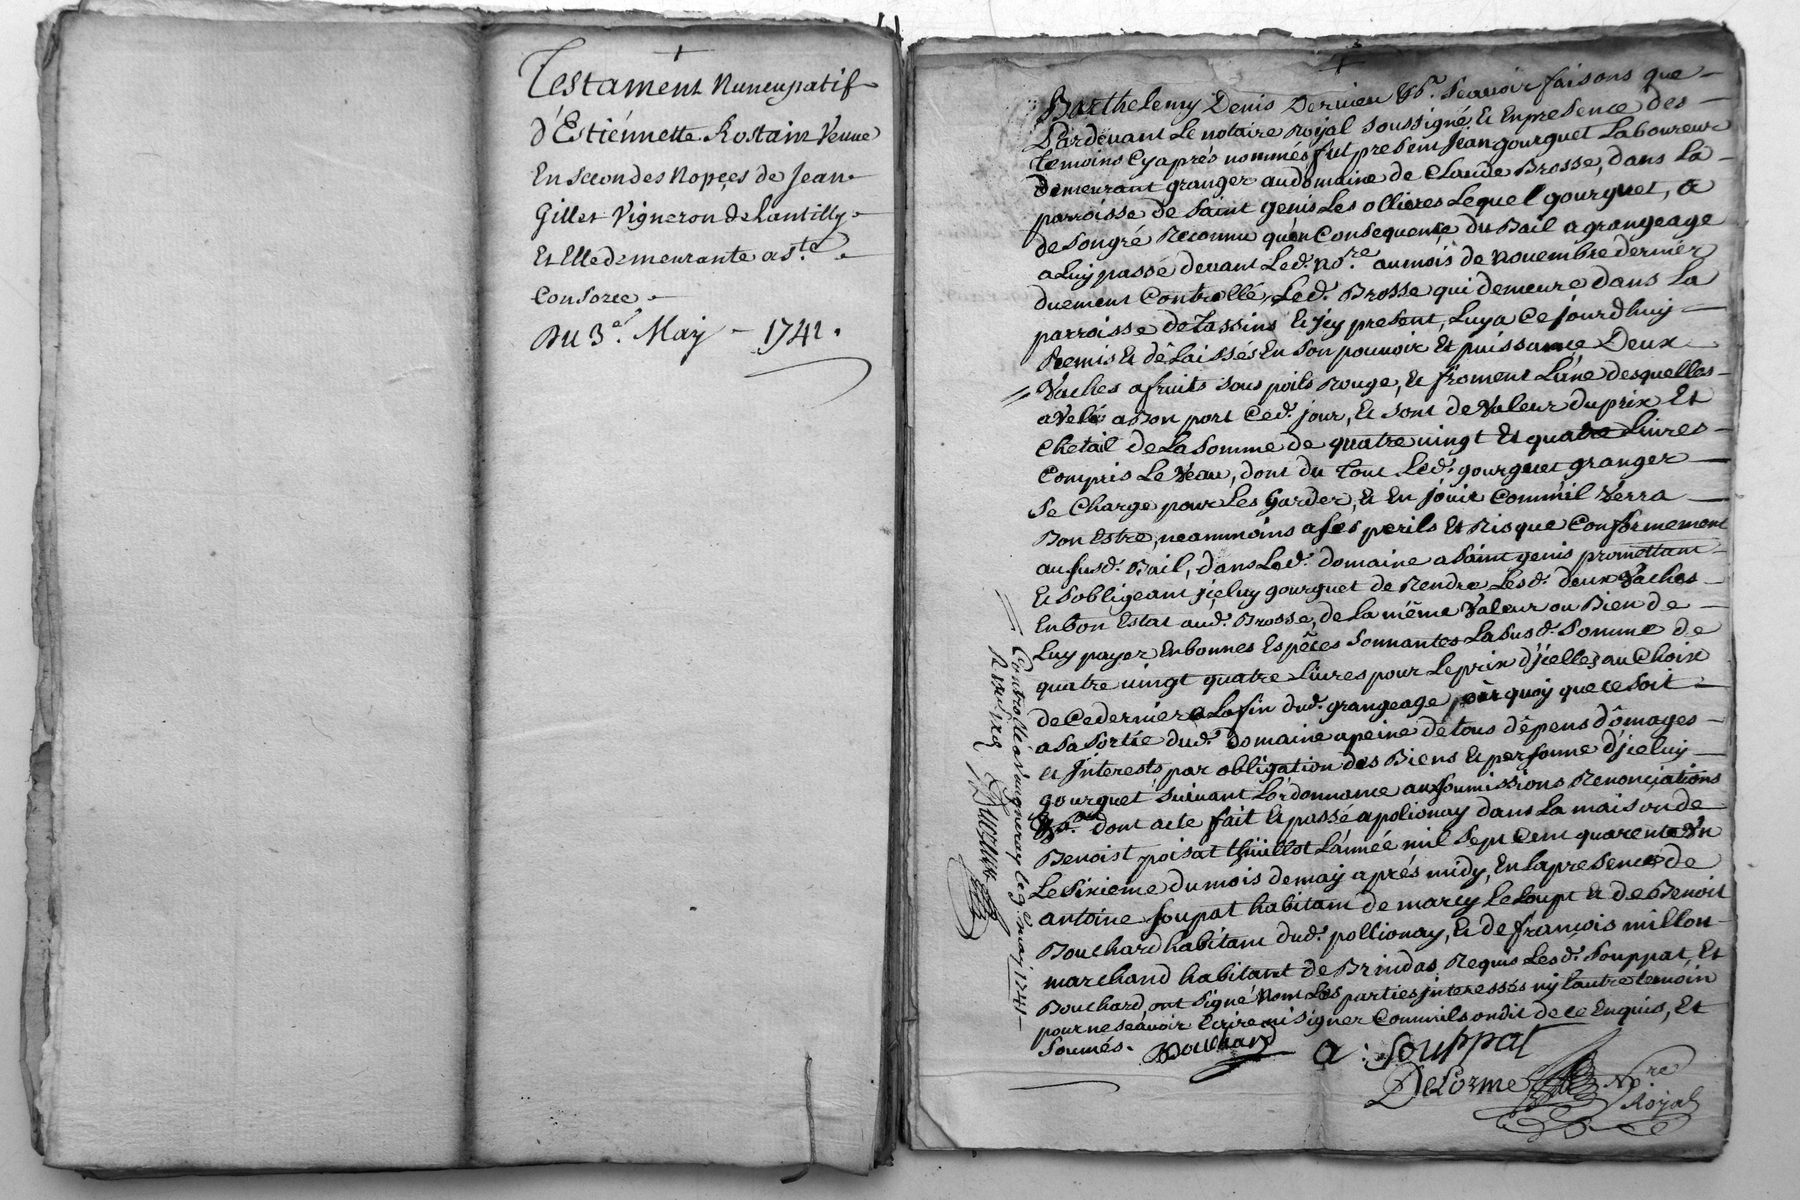 Testament Nuncupatif
d'Estiennette Rostain Veuve
En secondes Nopçes de Jean
Gillet Vigneron de Lantilly
Et Elle demeurante a s.te
Consorce
Du 3.e May - 1741.
Barthelemy Denis Dervieu &c.a Scavoir faisons que
Pardevant Le notaire Royal soussigné et En presence des
temoins Cyaprés nommés fut present Jean gourguet Laboureur
demeurant granger audomaine de Claude Brosse, dans La
parroisse de saint genis Les ollieres Lequel gourguet, a
de songré Reconnu qu'en Consequence du Bail a grangeage
a Luy passé devant Led. No.re au mois de novembre dernier
duement Controllé, Led. Brosse qui demeure dans La
parroisse de Tassins et Jcy present, Luy a Ce jourdhuy
Remis et déLaissés En son pouvoir Et puissance Deux
Vaches a fruits sous poils Rouge, et froment L'une desquelles
a velé a Bon port Ced. jour, et sont de valeur du prix Et
Chetail de La somme de quatre vingt Et quatre Livres
Compris Le veau, dont du tout Led. gourguet granger
se Charge pour Les Garder, et En jouir Comm'il verra
Bon Estre, neammoins a ses perils Et Risque Conformement
au susd. Bail, dans Led. domaine a saint genis promettant
et s'obligeant jceluy gourguet de Rendre Lesd. deux Vaches
En bon Estat aud. Brosse, de La même Valeur ou Bien de
Luy payer En bonnes Espéces sonnantes La susd. somme de
quatre vingt quatre Livres pour Le prix d'jcelles au Choix
de Ce dernier a La fin dud. grangeage, ou quoy que ce soit
a sa sortie dud. domaine a peine de tous dépens dômages
et jnterests par obligation des Biens et personne d'jceluy
gourguet suivant L'ordonnance aux soumissions Renonciations
&c.a dont acte fait et passé a polionay dans La maison de
Benoist poisat thuillot L'année mil sept Cent quarente Un
Le sixieme du mois de may aprés midy, En La presence de
antoine soupat habitant de marcy Le Loup et de Benoit
Bouchard habitant dud. pollionay, et de francois millon
marchand habitant de Brindas Requis Lesd. souppat, Et
Bouchard, ont signé Non Les parties jnteressés ny L'autre temoin
pour ne scavoir Ecrire ni signer Comm'ils ondit de ce Enquis, Et
sommés.
Bouchard a : Souppat
DeLorme No.re
Royal
Controllé a vaugneray le 9.e may 1741